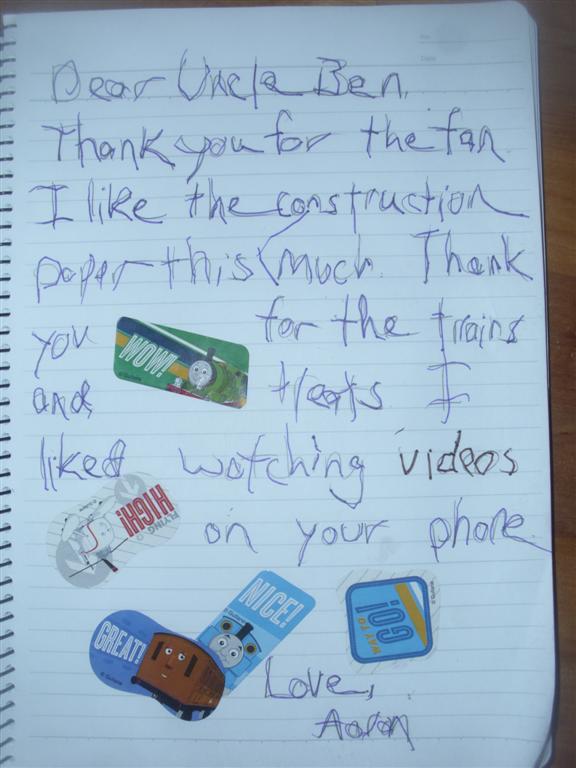 Dear Uncle Ben,
Thank you for the fan
I like the construction
paper this much. Thank
you for the trains
WOW!
and treats I
liked watching videos
FLYING
HIGH!
on your phone.
NICE!
GREAT!
WAY TO
GO!
Love,
Aaron